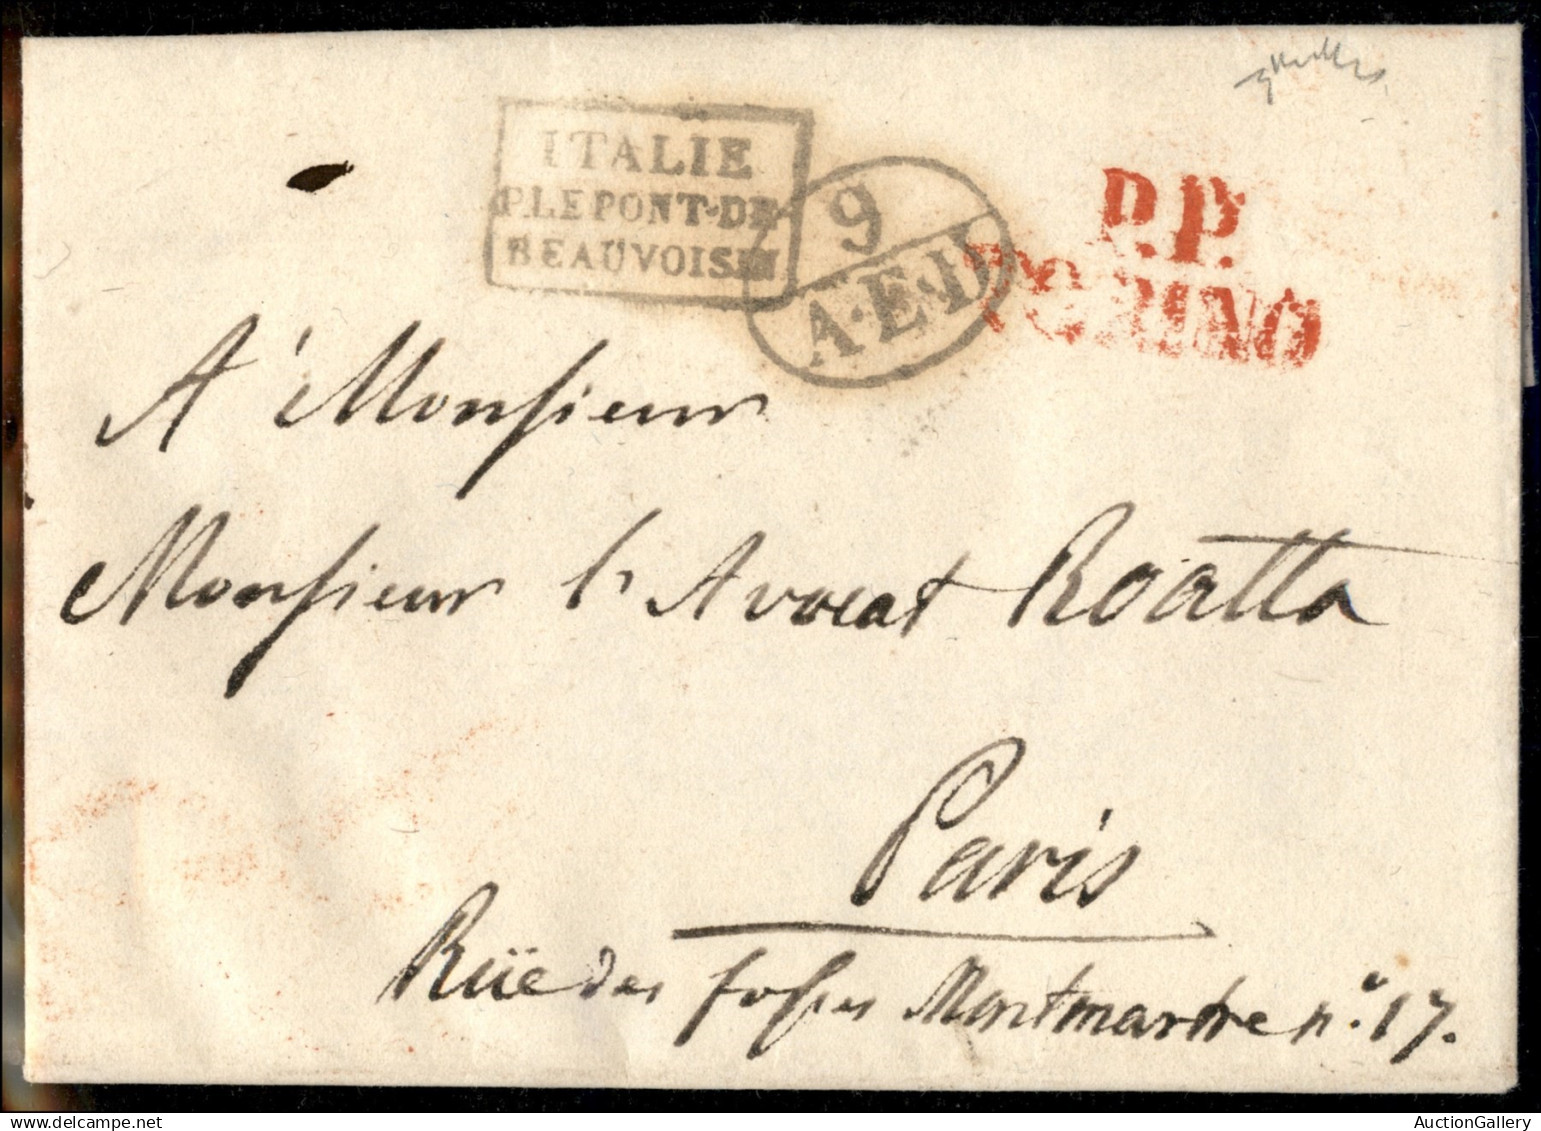 ITALIE
P.LE PONT-DE-
BEAUVOISIN
9
A.E.D
P.P.
TORINO
A Monsieur
Monsieur l'Avocat Roatta
Paris
Rüe des fossés Montmartre n.° 17.
AuctionGallery